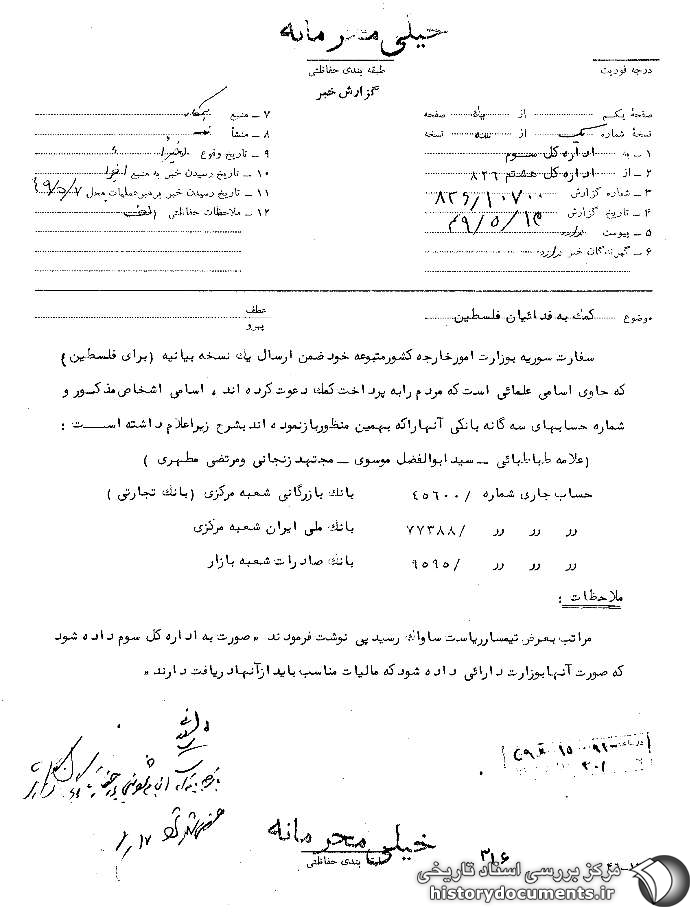 خیلی محرمانه
طبقه بندی حفاظتی
درجه فوریت
گزارش خبر
صفحهٔ یکم از یک صفحه
نسخهٔ شماره یک از سه نسخه
۱ ـ به اداره کل سوم
۲ ـ از اداره کل هشتم ۸۲۶
۳ ـ شماره گزارش ۸۲۶/۱۰۷۰۰
۴ ـ تاریخ گزارش ۴۹/۵/۱۳
۵ ـ پیوست ندارد
۶ ـ گیرندگان خبر ندارد
۷ ـ منبع
۸ ـ منشأ
۹ ـ تاریخ وقوع اخیراً
۱۰ ـ تاریخ رسیدن خبر به منبع اخیراً
۱۱ ـ تاریخ رسیدن خبر برهبرعملیات محل ۴۹/۵/۷
۱۲ ـ ملاحظات حفاظتی
موضوع کمک به فدائیان فلسطین
عطف
پیرو
سفارت سوریه بوزارت امورخارجه کشورمتبوعه خود ضمن ارسال یک نسخه بیانیه (برای فلسطین)
که حاوی اسامی علمائی است که مردم رابه پرداخت کمک دعوت کرده اند ، اسامی اشخاص مذکور و
شماره حسابهای سه گانه بانکی آنهاراکه بهمین منظوربازنموده اند بشرح زیراعلام داشته است :
(علامه طباطبائی ـ سید ابوالفضل موسوی ـ مجتهد زنجانی ومرتضی مطهری )
حساب جاری شماره /۴۵۶۰۰ بانک بازرگانی شعبه مرکزی (بانک تجارتی )
رر رر رر /۷۷۳۸۸ بانک ملی ایران شعبه مرکزی
رر رر رر /۹۵۹۵ بانک صادرات شعبه بازار
ملاحظات :
مراتب بعرض تیمسارریاست ساواک رسید پی نوشت فرمودند « صورت به اداره کل سوم داده شود
که صورت آنهابوزارت دارائی داده شود که مالیات مناسب باید ازآنهادریافت دارند »
خیلی محرمانه
طبقه بندی حفاظتی
۳۱۶
مرکز بررسی اسناد تاریخی
historydocuments.ir